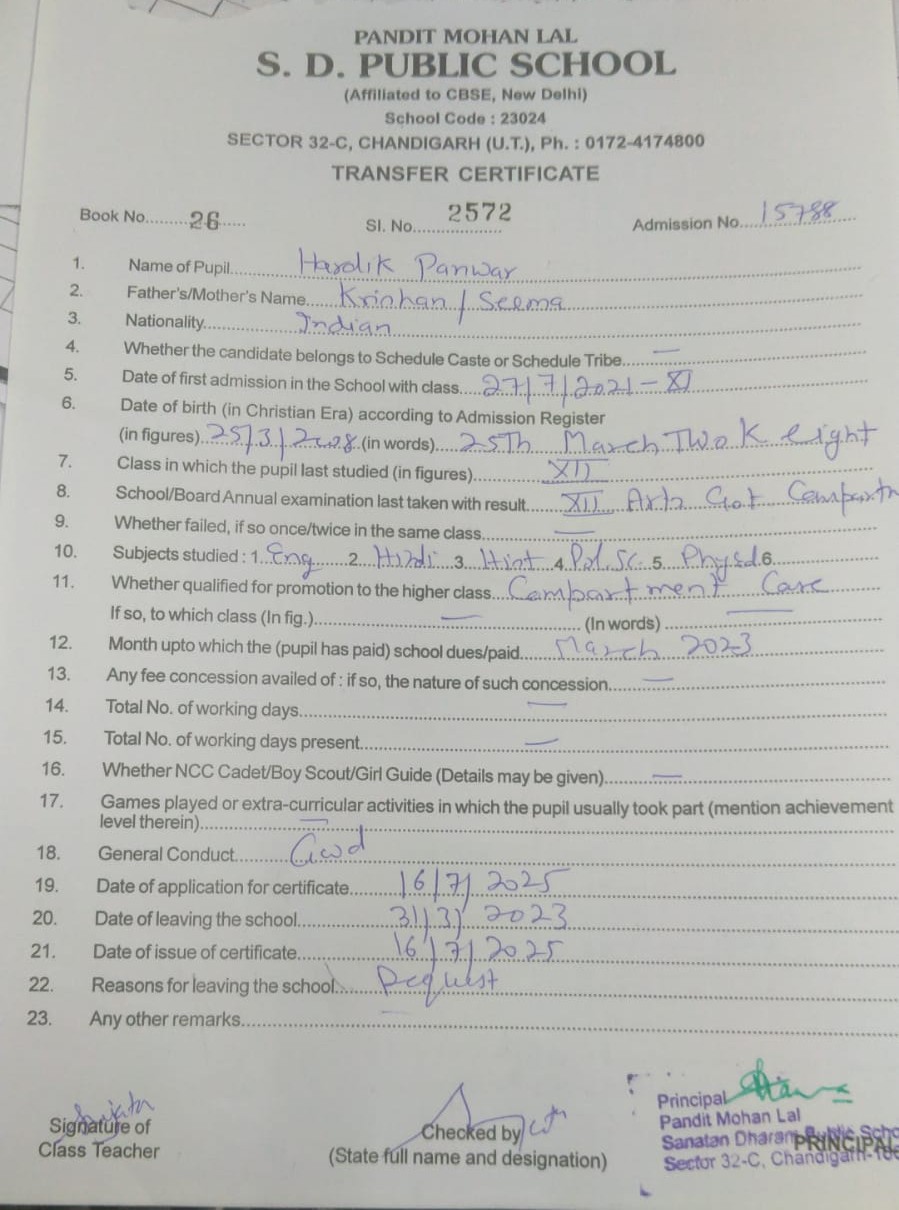 PANDIT MOHAN LAL
S. D. PUBLIC SCHOOL
(Affiliated to CBSE, New Delhi)
School Code : 23024
SECTOR 32-C, CHANDIGARH (U.T.), Ph. : 0172-4174800
TRANSFER CERTIFICATE
Book No. 26 Sl. No. 2572 Admission No. 15788
1. Name of Pupil Hardik Panwar
2. Father's/Mother's Name Krinhan / Seema
3. Nationality Indian
4. Whether the candidate belongs to Schedule Caste or Schedule Tribe —
5. Date of first admission in the School with class 27/7/2021 – XI
6. Date of birth (in Christian Era) according to Admission Register
(in figures) 25/3/2008 (in words) 25Th March Two K eight
7. Class in which the pupil last studied (in figures) XII
8. School/Board Annual examination last taken with result XII Arts Got Compartm
9. Whether failed, if so once/twice in the same class —
10. Subjects studied : 1. Eng 2. Hindi 3. Hist 4. Pol. Sc. 5. Physd 6.
11. Whether qualified for promotion to the higher class Compartment Case
If so, to which class (In fig.) — (In words) —
12. Month upto which the (pupil has paid) school dues/paid March 2023
13. Any fee concession availed of : if so, the nature of such concession —
14. Total No. of working days —
15. Total No. of working days present —
16. Whether NCC Cadet/Boy Scout/Girl Guide (Details may be given) —
17. Games played or extra-curricular activities in which the pupil usually took part (mention achievement
level therein) —
18. General Conduct Good
19. Date of application for certificate 16/7/2025
20. Date of leaving the school 31/3/2023
21. Date of issue of certificate 16/7/2025
22. Reasons for leaving the school Request
23. Any other remarks —
Signature of
Class Teacher
Checked by
(State full name and designation)
Principal
Pandit Mohan Lal
Sanatan Dharam Public Scho
PRINCIPAL
Sector 32-C, Chandigarh-160